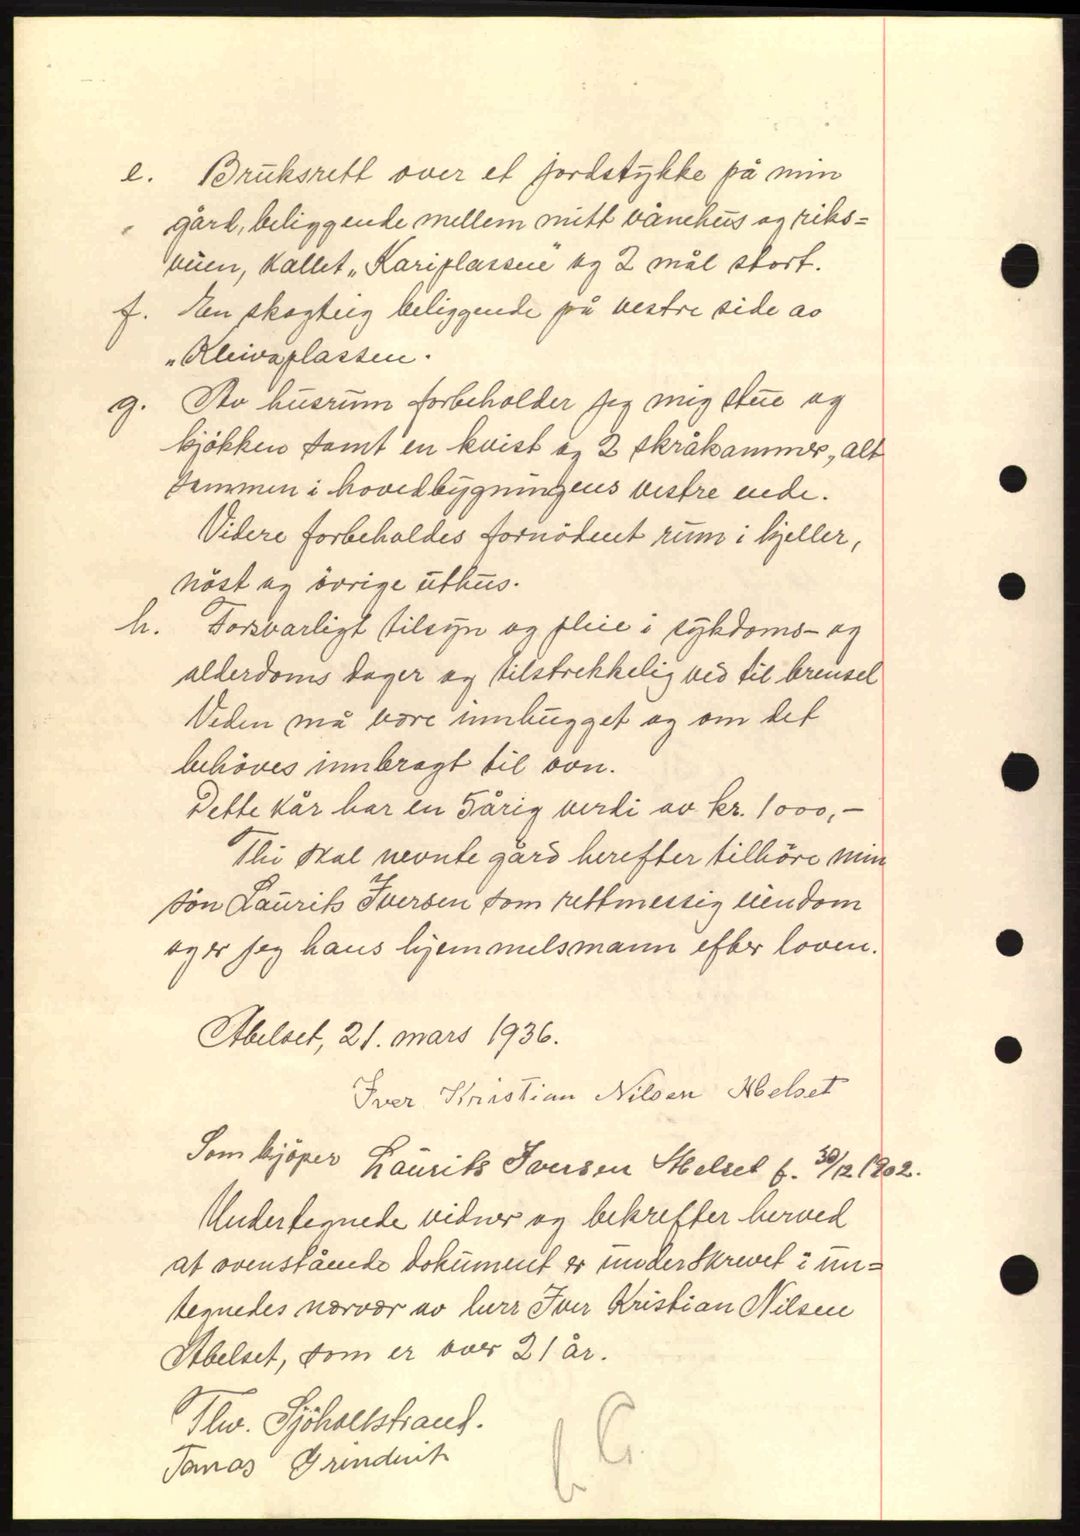 e. Bruksrett over et jordstykke på min
gård, beliggende mellem mitt vånehus og riks=
veien, kallet „Kariplassen" og 2 mål stort.
f. En skogteig beliggende på vestre side av
„Kleivaplassen.
g. Av husrum forbeholder jeg mig stue og
kjökken samt en kvist og 2 skråkammer, alt
sammen i hovedbygningens vestre ende.
Videre forbeholdes fornödent rum i kjeller,
nöst og övrige uthus.
h. Forsvarligt tilsyn og pleie i sykdoms- og
alderdoms dager og tilstrekkelig ved til brensel
Veden må være innhugget og om det
behöves innbragt til ovn.
Dette kår har en 5årig verdi av kr. 1000,-
Thi skal nevnte gård herefter tilhöre min
sön Laurits Iversen som rettmessig eiendom
og er jeg hans hjemmelsmann efter loven.
Abelset, 21. mars 1936.
Iver Kristian Nilsen Abelset
Som kjöper Laurits Iversen Abelset f. 30/12 1902.
Undertegnede vidner og bekrefter herved
at ovenstående dokument er underskrevet i un=
tegnedes nærvær av herr Iver Kristian Nilsen
Abelset, som er over 21 år.
Thv. Sjöholtstrand.
Tomas